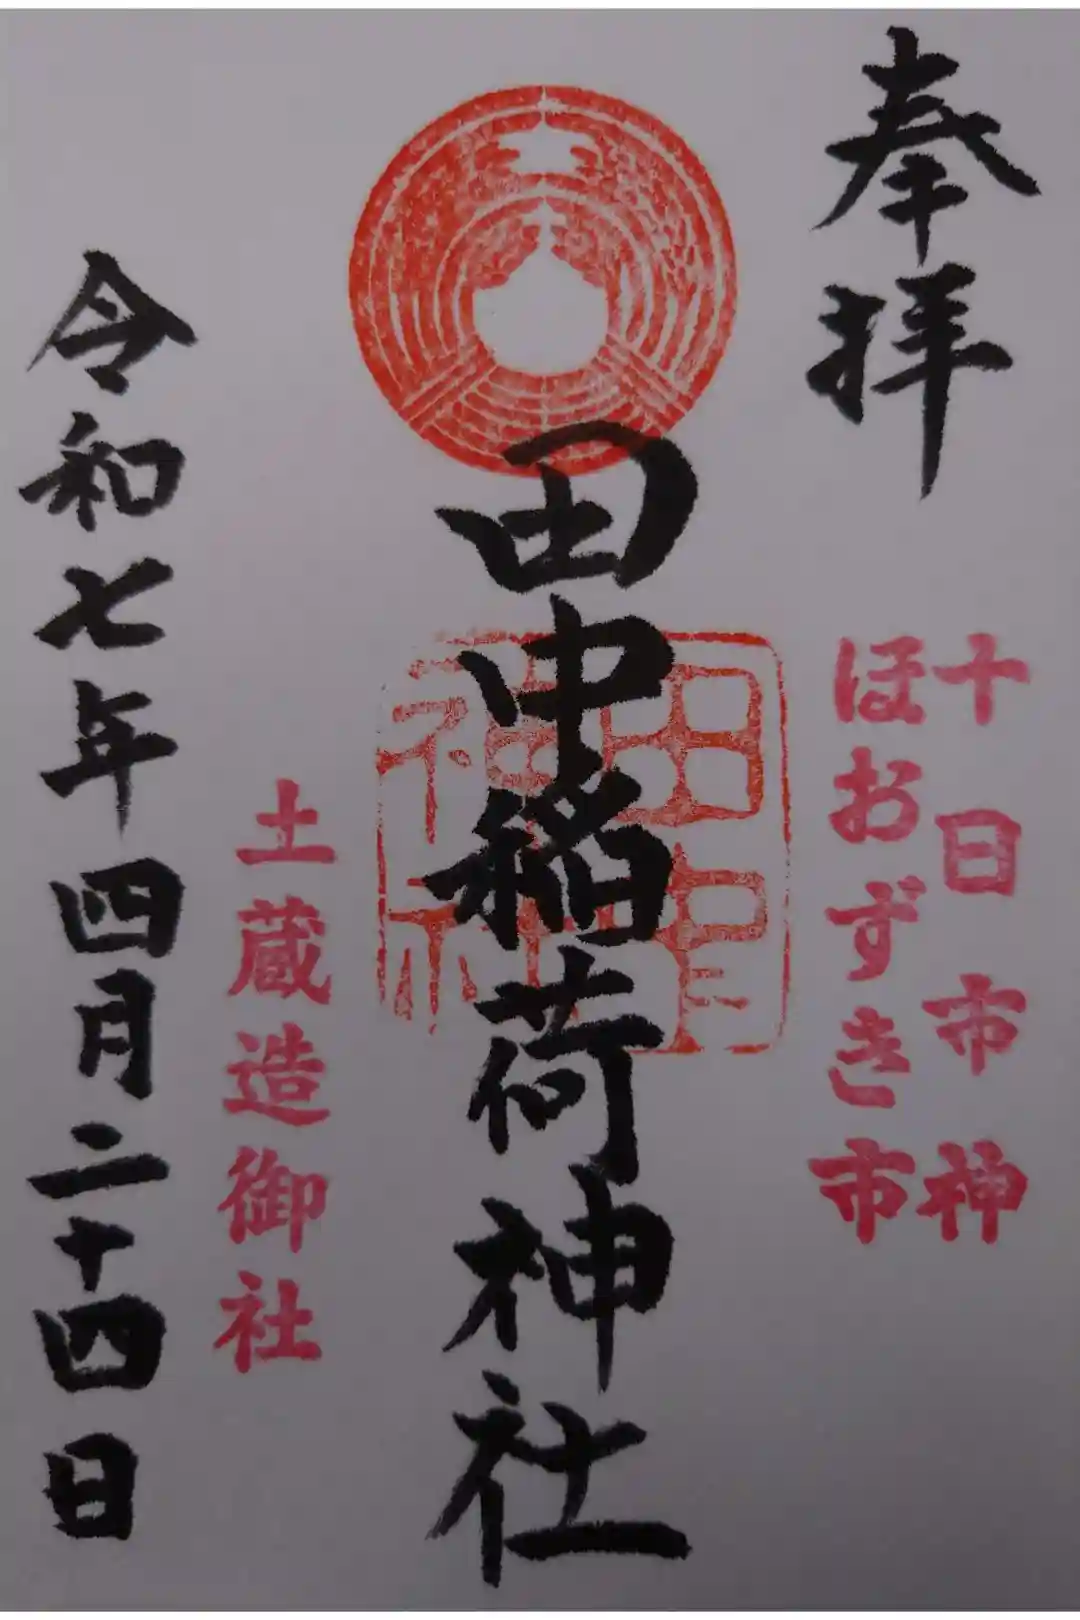 奉拝
十日市神
ほおずき市
田中稲荷神社
田中
神社
土蔵造御社
令和七年四月二十四日